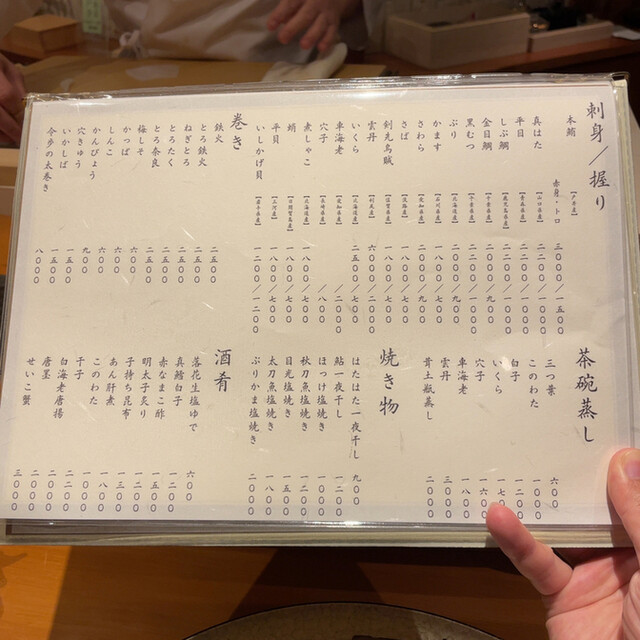 刺身/握り
本鮪 【戸井産】 赤身・トロ 三〇〇〇/一五〇〇
真はた 【山口県産】
平目 【青森県産】
しぶ鯛 【鹿児島県産】
金目鯛 【千葉県産】
黒むつ 【千葉県産】
ぶり 【北海道産】
かます 【石川県産】 一八〇〇/七〇〇
さわら 【愛知県産】 二〇〇〇/九〇〇
さば 【淡路産】 一八〇〇/七〇〇
剣先烏賊 【佐賀県産】 一八〇〇/七〇〇
雲丹 【利尻産】 六〇〇〇/二〇〇〇
いくら 【北海道産】 二五〇〇/七〇〇
車海老 【愛知県産】 /二〇〇〇
穴子 【長崎県産】 /八〇〇
煮しゃこ 【北海道産】 一八〇〇/八〇〇
蛸 【日間賀島産】 一八〇〇/七〇〇
平貝 【三河産】
いしかげ貝 【岩手県産】 二〇〇/一二〇〇
巻き
鉄火 二五〇〇
とろ鉄火 二五〇〇
ねぎとろ 二五〇〇
とろたく 二五〇〇
とろ奈良 二五〇〇
梅しそ 六〇〇
かっぱ 六〇〇
しんこ 六〇〇
かんぴょう 九〇〇
穴きゅう 一五〇〇
いかしば 一五〇〇
今多の太巻き 八〇〇
茶碗蒸し
三つ葉 六〇〇
このわた 一〇〇〇
白子 一二〇〇
いくら 一七〇
穴子 一六〇
車海老 一八〇〇
雲丹
茸土瓶蒸し 二〇〇〇
焼き物
はたはた一夜干し 九〇〇
鮎一夜干し 一二〇〇
ほっけ塩焼き 一〇〇〇
秋刀魚塩焼き 一八〇〇
目光塩焼き 一五〇〇
太刀魚塩焼き 一八〇〇
ぶりかま塩焼き 二〇〇〇
酒肴
落花生塩ゆで 六〇〇
真鱈白子 一二〇〇
赤なまこ酢 一五〇〇
明太子炙り 一二〇〇
子持ち昆布 一三〇〇
あん肝煮 一八〇〇
このわた 一〇〇〇
干子 二〇〇〇
白海老唐揚 二〇〇〇
唐墨 二〇〇〇
せいこ蟹 三〇〇〇